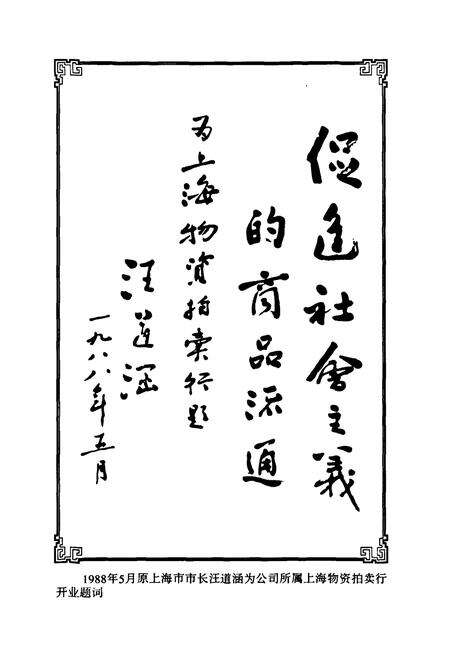 促進社會主義
的商品流通
为上海物资拍卖行题
汪道涵
一九八八年五月
1988年5月原上海市市长汪道涵为公司所属上海物资拍卖行
开业题词